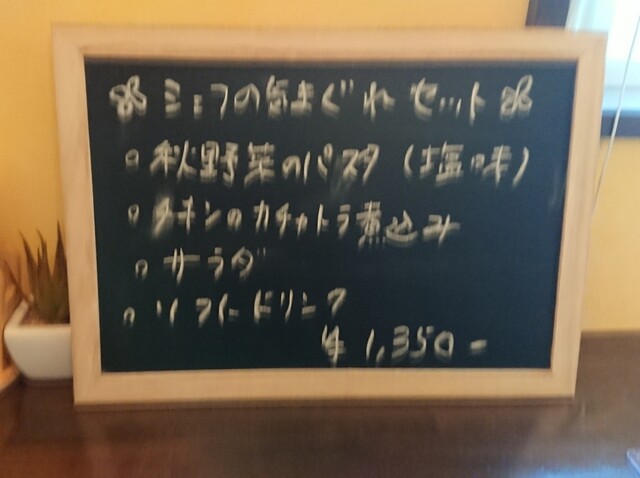 シェフの気まぐれセット
秋野菜のパスタ(塩味)
チキンのカチャトラ煮込み
サラダ
ソフトドリンク
¥1,350-